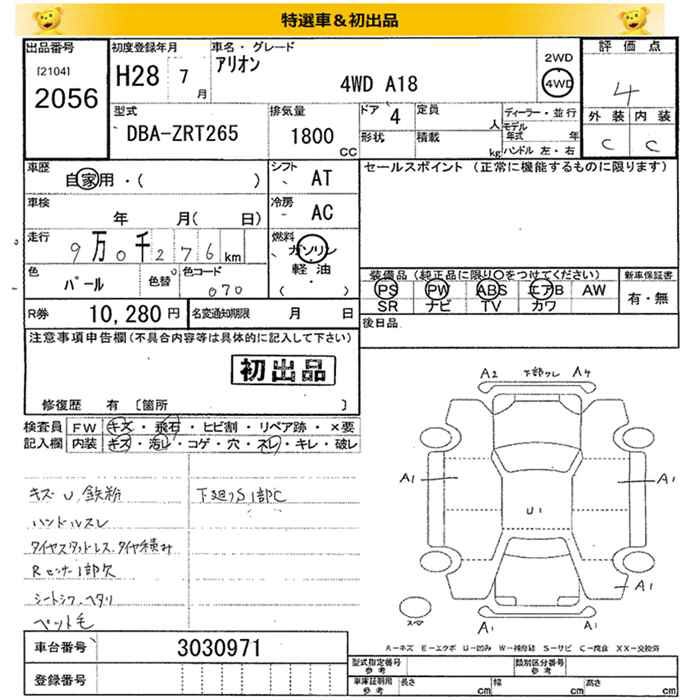 特選車＆初出品
出品番号 初度登録年月 車名・グレード 2WD 評価点
[2104] 2056 H28 7月 アリオン 4WD A18 4WD 4
型式 排気量 ドア 4 定員 人 ディーラー・並行 外装 内装
DBA-ZRT265 1800 CC 形状 積載 kg モデル年式 年 C C
ハンドル 左・右
車歴 自家用・( ) シフト AT セールスポイント (正常に機能するものに限ります)
車検 年 月( 日) 冷房 AC
走行 9万0千276km 燃料 ガソリン
色 パール 色替 色コード 070 軽油・( )
装備品 (純正品に限り○をつけてください) 新車保証書
PS PW ABS エアB AW 有・無
SR ナビ TV カワ
R券 10,280円 名変通知期限 月 日
後日品
注意事項申告欄(不具合内容等は具体的に記入して下さい)
初出品
修復歴 有 [箇所 ]
A2 下部ワレ A4
検査員 FW キズ・飛石・ヒビ割・リペア跡・×要
記入欄 内装 キズ・汚レ・コゲ・穴・スレ・キレ・破レ
A1 A1
キズ U 鉄粉 下廻りS1部C
U1
ハンドルスレ
タイヤスタットレス.タイヤ積み
Rセンサー1部欠
A1
シートシワ.ヘタリ
ペット毛
スペア
A1 A1
車台番号 3030971
A-キズ E-エクボ U-凹み W-補修跡 S-サビ C-腐食 XX-交換済
登録番号
型式指定番号 参考 類別区分番号 参考
車庫証明用 参考 長さ cm 幅 cm 高さ cm